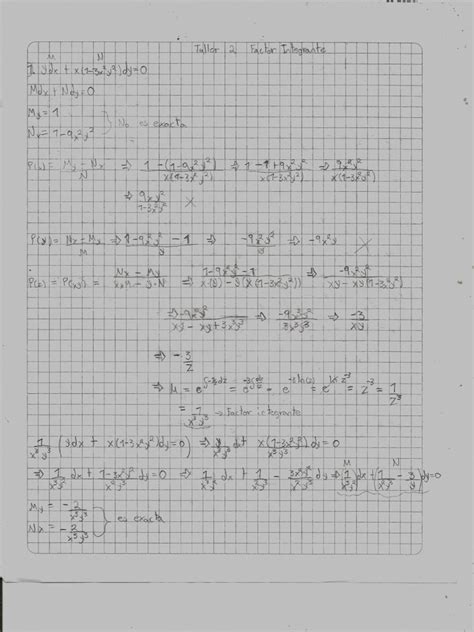 Taller 2 Factor Integrante
M N
1. ydx + x(1-3x²y²)dy=0
Mdx + Ndy=0
My = 1
Nx = 1-9x²y² } No es exacta
P(x) = (My - Nx)/N ⇒ (1-(1-9x²y²))/(x(1-3x²y²)) ⇒ (1-1+9x²y²)/(x(1-3x²y²)) ⇒ (9x²y²)/(x(1-3x²y²))
⇒ (9xy²)/(1-3x²y²) X
P(y) = (Nx - My)/M ⇒ (1-9x²y²-1)/y ⇒ (-9x²y²)/y ⇒ -9x²y X
P(z) = P(xy) = (Nx - My)/(x.M - y.N) ⇒ (1-9x²y²-1)/(x(y)-y(x(1-3x²y²))) ⇒ (-9x²y²)/(xy-xy(1-3x²y²))
⇒ (-9x²y²)/(xy-xy+3x³y³) ⇒ (-9x²y²)/(3x³y³) ⇒ -3/(xy)
⇒ -3/z
⇒ μ = e^∫-3/z dz = e^-3∫dz/z = e^-3ln(z) = e^ln z^-3 = z^-3 = 1/z³
= 1/(x³y³) → Factor integrante
1/(x³y³) (ydx + x(1-3x²y²)dy=0) ⇒ y/(x³y³) dx + x(1-3x²y²)/(x³y³) dy=0
⇒ 1/(x³y²) dx + (1-3x²y²)/(x²y³) dy ⇒ 1/(x³y²) dx + 1/(x²y³) - (3x²y²)/(x²y³) dy ⇒ (1/(x³y²))dx + (1/(x²y³) - 3/y)dy=0
M N
My = -2/(x³y³)
Nx = -2/(x³y³) } es exacta